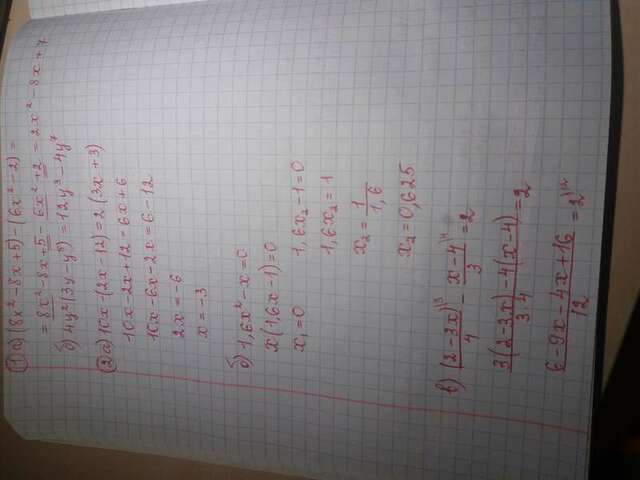 1 а) (8x²-8x+5)-(6x²-2)=
= 8x²-8x+5-6x²+2=2x²-8x+7
б) 4y²(3y-y⁵)=12y³-4y⁷
2 а) 10x-(2x-12)=2(3x+3)
10x-2x+12=6x+6
10x-6x-2x=6-12
2x=-6
x=-3
б) 1,6x²-x=0
x(1,6x-1)=0
x₁=0 1,6x₂-1=0
1,6x₂=1
x₂=1/1,6
x₂=0,625
в) (2-3x)\³/4 - x-4\⁴/3 =2
3(2-3x)-4(x-4)/3·4=2
6-9x-4x+16/12=2\¹²